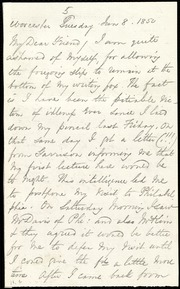 5
Worcester Tuesday Jan 8. 1850
My Dear Friend, I am quite
ashamed of myself, for allowing
the foregoing to remain at the
bottom of my writing . The fact
is I have been the
ever since I laid
down my pencil last Friday. On
that same day I got a letter
from Garrison informing me that
my first lecture here would be
to Night. This intelligence led me
to postpone my visit to Philadel
phia. On Saturday Morning I saw
Mr Davis of Pha: and also McKim
& they agreed it would be better
for me to defer my visit until
I could give the a little more
time. After I came back from